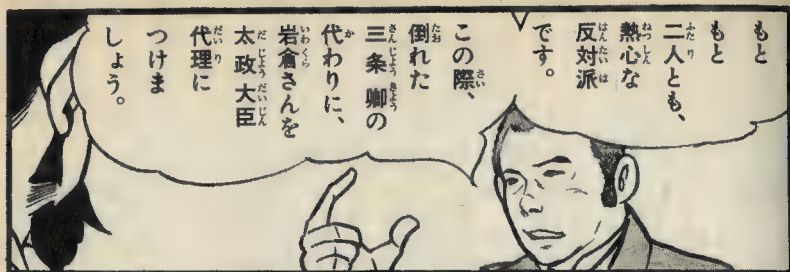 もと
もと
二人とも、
熱心な
反対派
です。
この際、
倒れた
三条卿の
代わりに、
岩倉さんを
太政大臣
代理に
つけま
しょう。